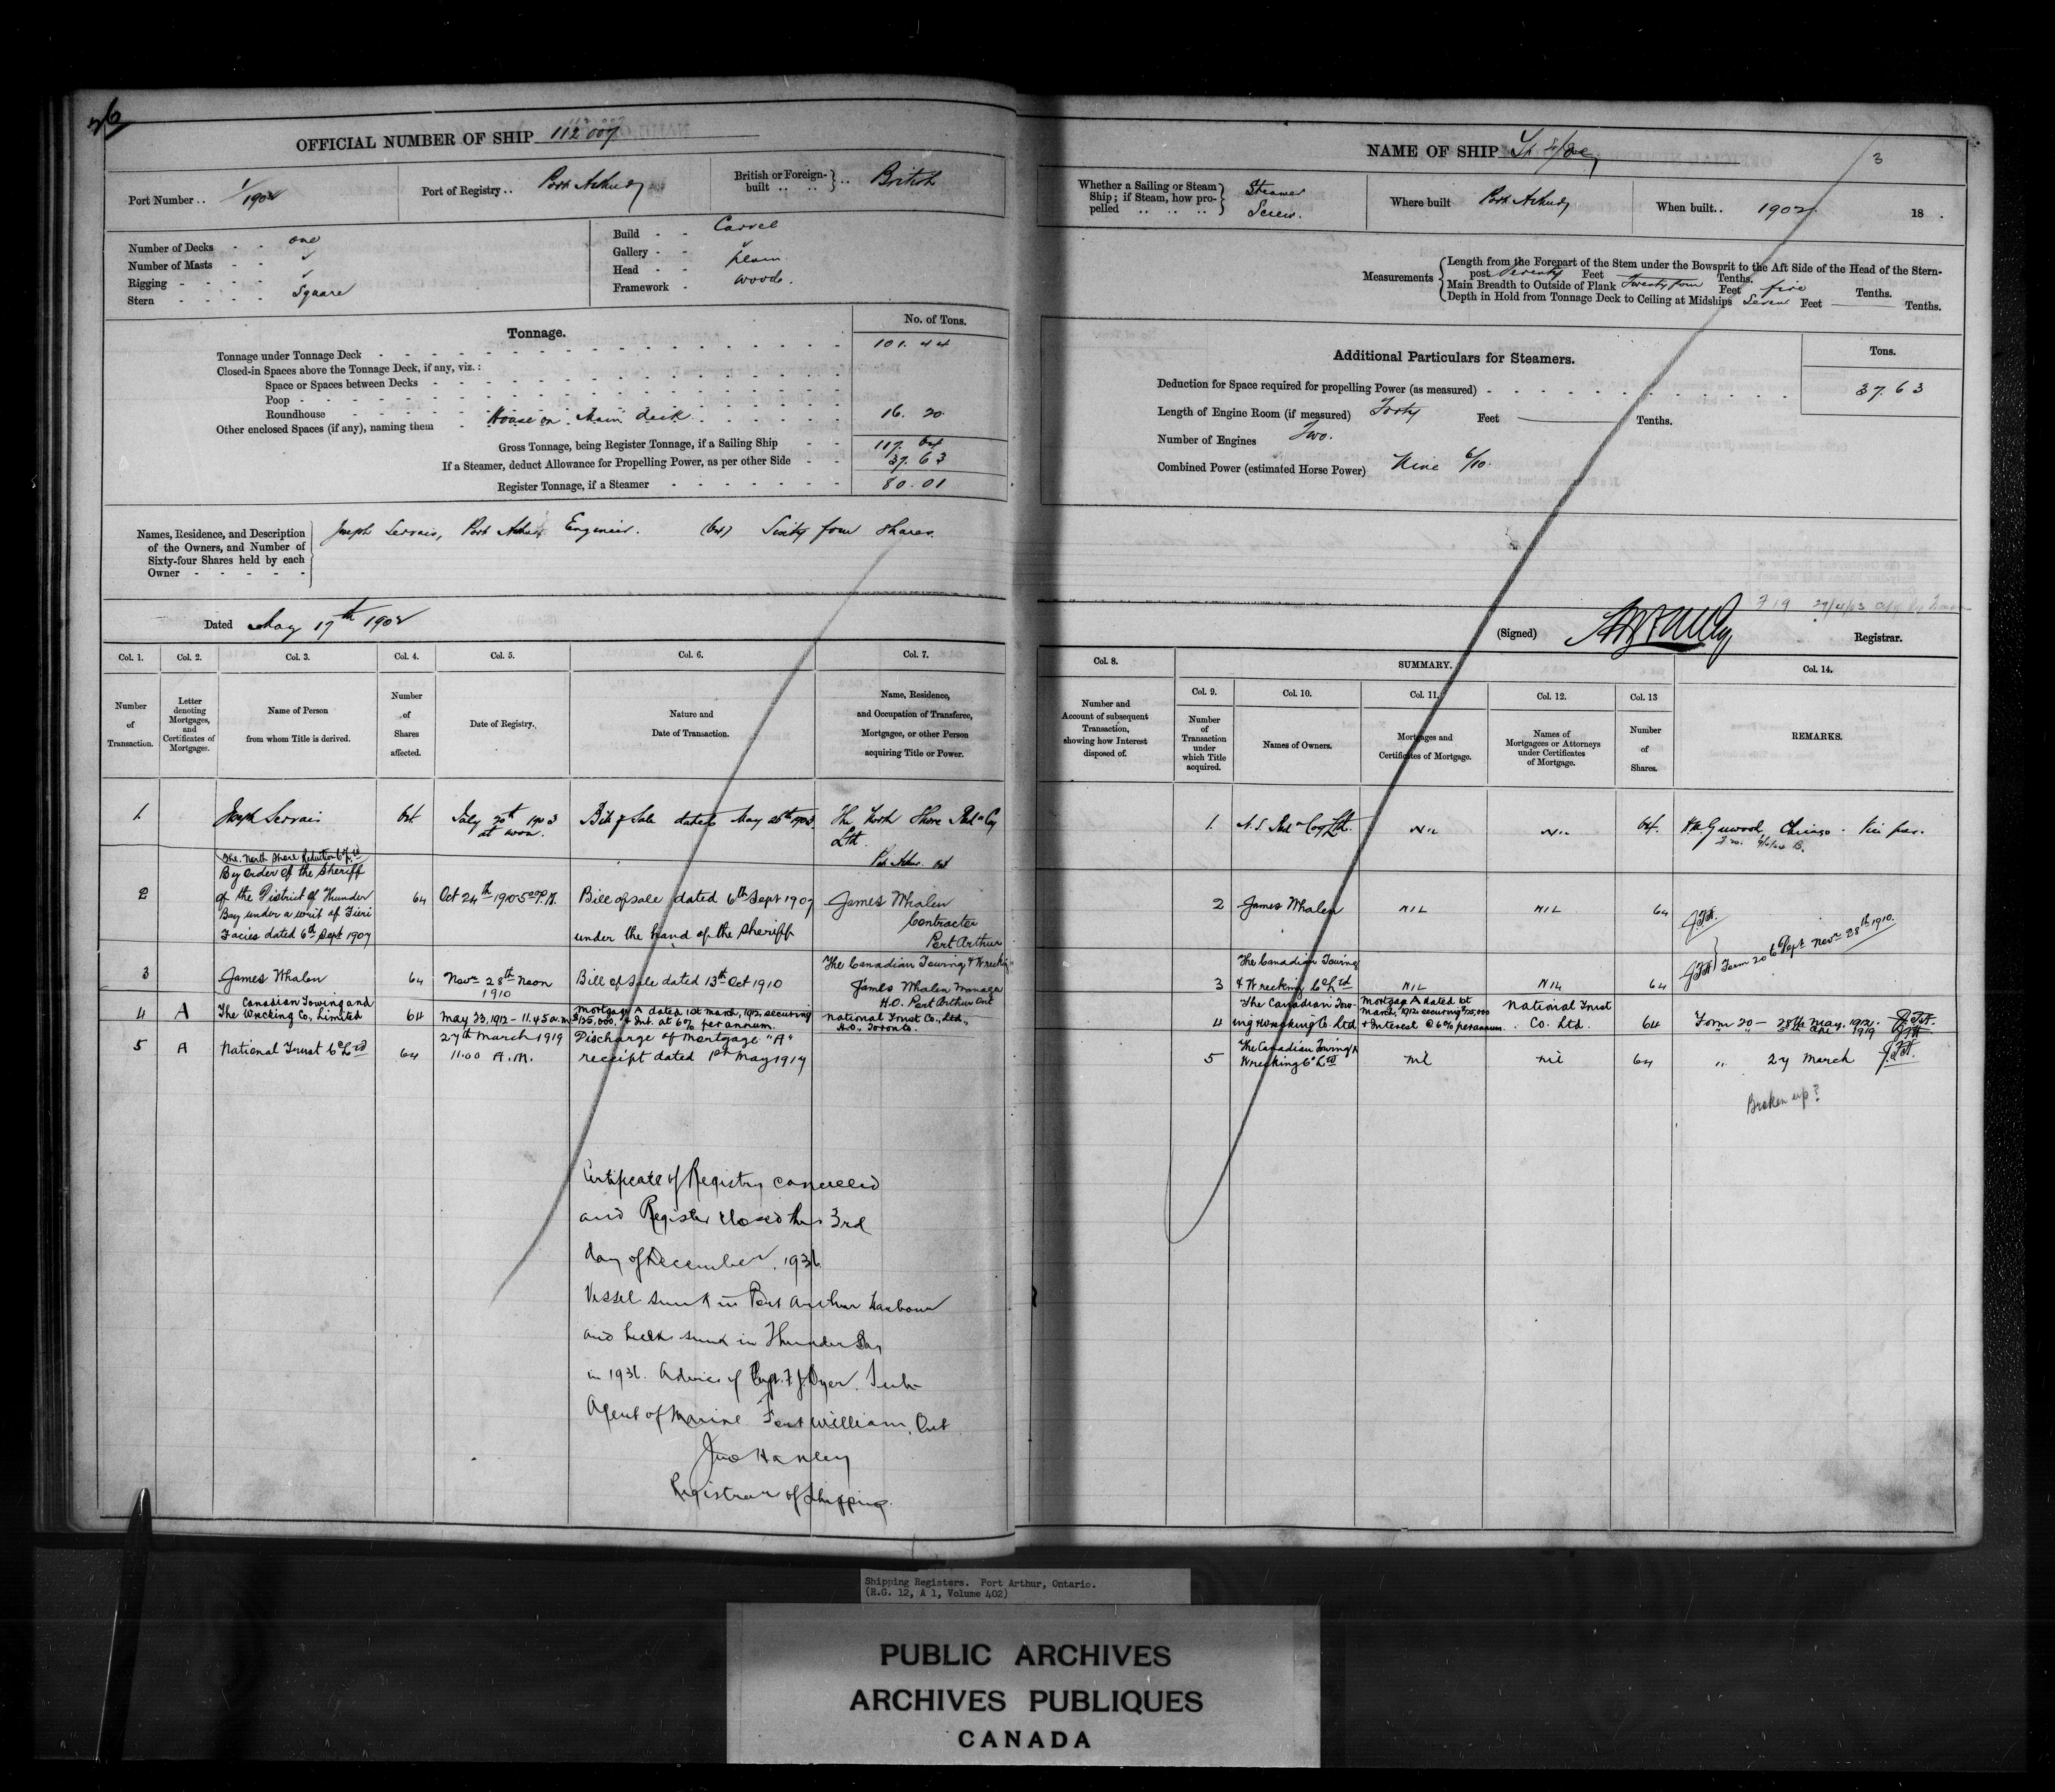 OFFICIAL NUMBER OF SHIP 112 007
Port Number .. 1/1902
Port of Registry .. Port Arthur
British or Foreign-built .. .. } .. British
Number of Decks - - one
Number of Masts - -
Rigging - - - -
Stern - - - - Square
Build - - Carvel
Gallery - -
Head - -
Framework - Wood.
Tonnage.
No. of Tons.
Tonnage under Tonnage Deck 101. 44
Closed-in Spaces above the Tonnage Deck, if any, viz.:
Space or Spaces between Decks
Poop
Roundhouse
Other enclosed Spaces (if any), naming them House on Main deck 16. 20
Gross Tonnage, being Register Tonnage, if a Sailing Ship 117. 64
If a Steamer, deduct Allowance for Propelling Power, as per other Side 37. 63
Register Tonnage, if a Steamer 80. 01
Names, Residence, and Description
of the Owners, and Number of
Sixty-four Shares held by each
Owner
Joseph Servais, Port Arthur Engineer. (64) Sixty four shares.
Dated May 17th 1902
Col. 1. Col. 2. Col. 3. Col. 4. Col. 5. Col. 6. Col. 7.
Number of Transaction.
Letter denoting Mortgages, and Certificates of Mortgages.
Name of Person from whom Title is derived.
Number of Shares affected.
Date of Registry.
Nature and Date of Transaction.
Name, Residence, and Occupation of Transferee, Mortgagee, or other Person acquiring Title or Power.
1. Joseph Servais 64. July 20th 1903 at noon. Bill of Sale dated May 26th 1903. The North Shore Redn Coy Ltd. Port Arthur Ont
The North Shore Reduction Co Ltd
By order of the Sheriff
2 of the District of Thunder 64 Oct 24th 1905 P.M. Bill of sale dated 6th Sept 1907 James Whalen
Bay under a writ of Fieri Contractor
Facies dated 6th Sept 1907 under the hand of the Sheriff Port Arthur
3 James Whalen 64 Novr 28th Noon 1910 Bill of Sale dated 13th Oct 1910 The Canadian Towing & Wrecking
James Whalen Manager
H.O. Port Arthur Ont
4 A The Canadian Towing and Wrecking Co., Limited 64 May 23, 1912 - 11.45 a.m. Mortgage A dated 1st March, 1912, securing $125,000. & Int. at 6% per annum. National Trust Co., Ltd., H.O., Toronto.
5 A National Trust Co Ltd 64 27th March 1919 11.00 A.M. Discharge of Mortgage "A" receipt dated 1st May 1917
Certificate of Registry cancelled
and Register closed this 3rd
day of December, 1936
Vessel sunk in Port Arthur harbour
and hulk sunk in Thunder Bay
in 1936. Advice of Capt. F. J. Dyer. Sub-
Agent of Marine Fort William, Ont
Jno Hanley
Registrar of Shipping.
NAME OF SHIP
3
Whether a Sailing or Steam Ship; if Steam, how propelled .. .. .. } Steamer Screw.
Where built Port Arthur
When built.. 1902. 18 .
Measurements
Length from the Forepart of the Stem under the Bowsprit to the Aft Side of the Head of the Stern-
post Seventy Feet Tenths.
Main Breadth to Outside of Plank Twenty four Feet five Tenths.
Depth in Hold from Tonnage Deck to Ceiling at Midships Seven Feet Tenths.
Additional Particulars for Steamers.
Tons.
Deduction for Space required for propelling Power (as measured) 37. 63
Length of Engine Room (if measured) Forty Feet Tenths.
Number of Engines Two.
Combined Power (estimated Horse Power) Nine 6/10.
(Signed) Registrar.
Col. 8. SUMMARY. Col. 14.
Col. 9. Col. 10. Col. 11. Col. 12. Col. 13
Number and Account of subsequent Transaction, showing how Interest disposed of.
Number of Transaction under which Title acquired.
Names of Owners.
Mortgages and Certificates of Mortgage.
Names of Mortgagees or Attorneys under Certificates of Mortgage.
Number of Shares.
REMARKS.
1. N.S. Redn Coy Ltd. NIL NIL 64. Chicago
2 James Whalen NIL NIL 64
3 The Canadian Towing & Wrecking Co Ltd NIL NIL 64 Form 20 6 Dept Novr 28th 1910.
4 The Canadian Towing & Wrecking Co. Ltd Mortgage A dated 1st March, 1912, securing $125,000 & Interest @ 6% per annum. National Trust Co. Ltd. 64 Form 20 - 28th May, 1912.
5 The Canadian Towing & Wrecking Co Ltd nil nil 64 " 27 March 1919
Broken up?
Shipping Registers. Port Arthur, Ontario.
(R.G. 12, A 1, Volume 402)
PUBLIC ARCHIVES
ARCHIVES PUBLIQUES
CANADA